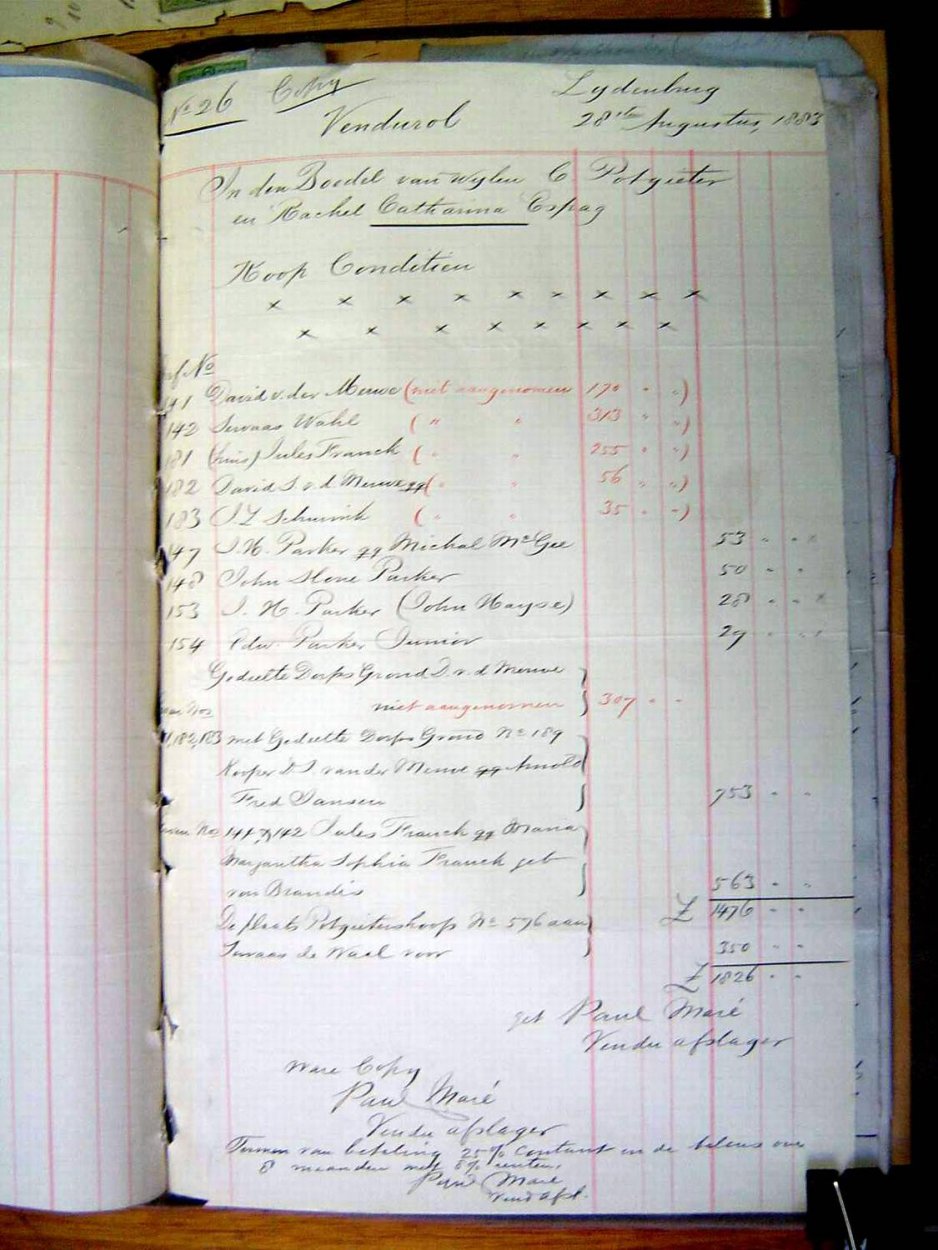 No 26 Copy Lydenburg
Vendurol 28ste Augustus, 1883
In den Boedel van wylen C Potgieter
en Rachel Catharina Espag
Koop Conditien
x x x x x x x x x
x x x x x x x x
Erf No
141 David v. der Merwe (niet aangenomen 170 " ")
142 Servaas Wahl ( " " 313 " ")
181 (huis) Jules Franck ( " " 255 " ")
182 David J. v. d Merwe qq ( " " 56 " ")
183 J. Z Schurink ( " " 35 " ")
147 J. H. Parker qq Michal McGee 53 " "
148 John Stone Parker 50 " "
153 J. H. Parker (John Hayse) 28 " "
154 Edw. Parker Junior 29 " "
Gedeelte Dorps Grond D. v. d Merwe
niet aangenomen 307 " "
Nos
182, 183 met Gedeelte Dorps Grond No 189
Kooper D J. van der Merwe qq Arnold
Fred Jansen 753 " "
Erven Nos 141 & 142 Jules Franck qq Maria
Margaretha Sophia Franck geb
von Brandis 563 " "
£ 1476 " "
De plaats Potgietershoop No 576 aan
Servaas de Waal voor 350 " "
£ 1826 " "
get Paul Maré
Vendu afslager
Ware Copy
Paul Maré
Vendu afslager
Termen van betaling 25% Contant en de balans over
8 maanden met 8% renten.
Paul Maré
Vend afsl.